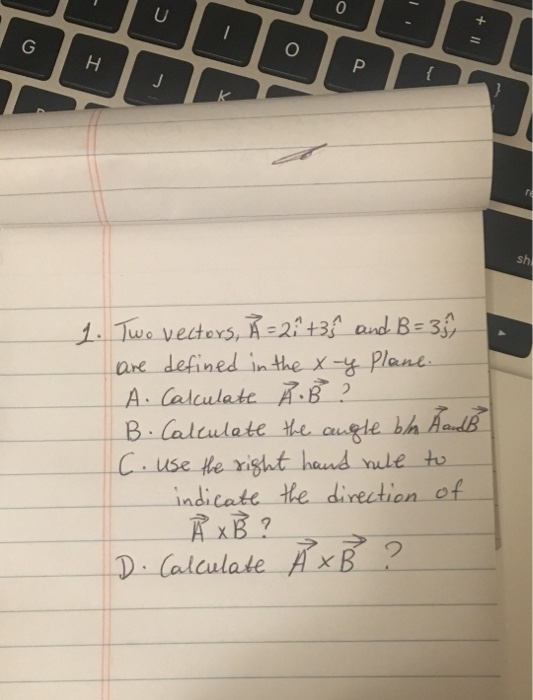 U
I
O
0
P
-
+
=
G
H
J
K
{
}
sh
1. Two vectors, A⃗ = 2î + 3ĵ and B = 3ĵ,
are defined in the x-y Plane.
A. Calculate A⃗·B⃗ ?
B. Calculate the angle b/n A⃗ and B⃗
C. use the right hand rule to
indicate the direction of
A⃗ x B⃗ ?
D. Calculate A⃗ x B⃗ ?